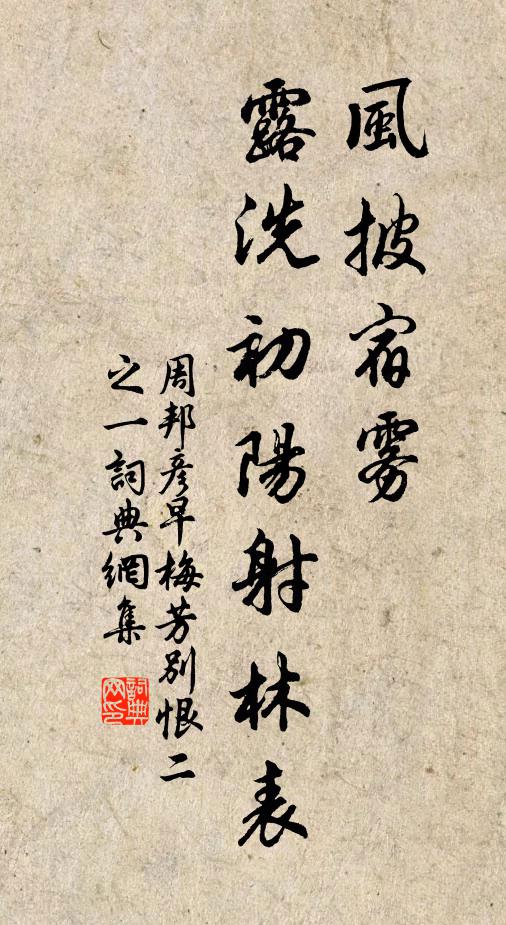 風披宿霧
露洗初陽射林表
周邦彦早梅芳別恨二
之一詞典網集
詞典
网印